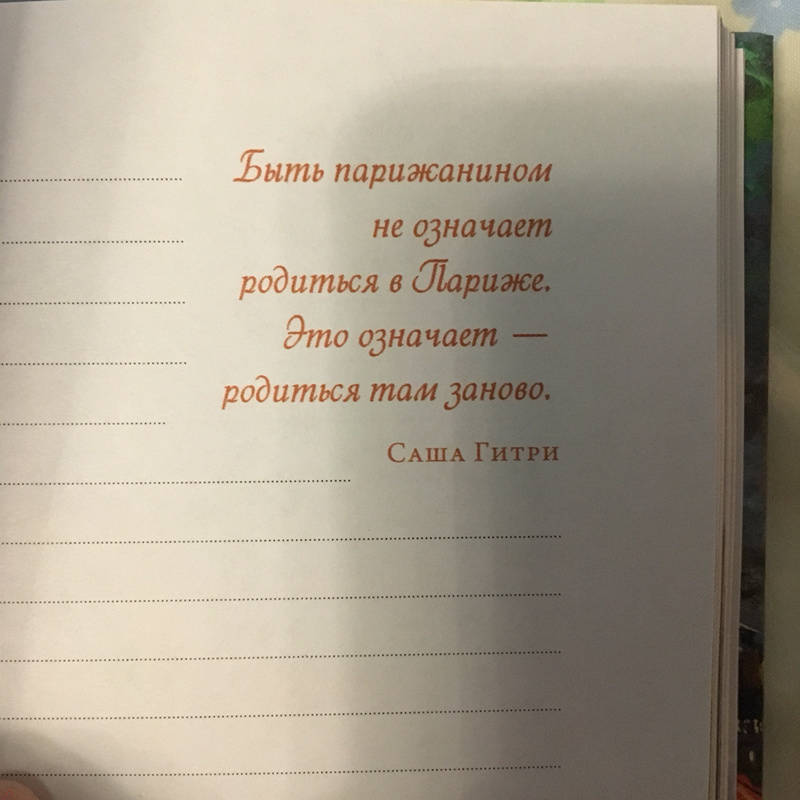 Быть парижанином
не означает
родиться в Париже.
Это означает —
родиться там заново.
Саша Гитри